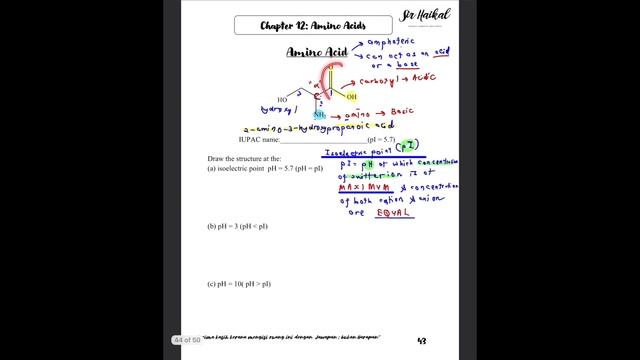 Sir Haikal
Chapter 12: Amino Acids
Amino Acid
amphoteric
can act as an acid
or a base
O
"α"
C
carboxyl → Acidic
3
2
1
HO
OH
hydroxyl
NH₂ → amino → Basic
2-amino-3-hydroxypropanoic acid
IUPAC name: (pI = 5.7)
Isoelectric point (pI)
Draw the structure at the:
pI = pH at which concentration
(a) isoelectric point pH = 5.7 (pH = pI)
of zwitterion is at
MAXIMUM & concentration
of both cation & anion
are EQUAL
(b) pH = 3 (pH < pI)
(c) pH = 10( pH > pI)
44 of 50
kerana mengisi ruang ini dengan jawapan ; bukan harapan"
43